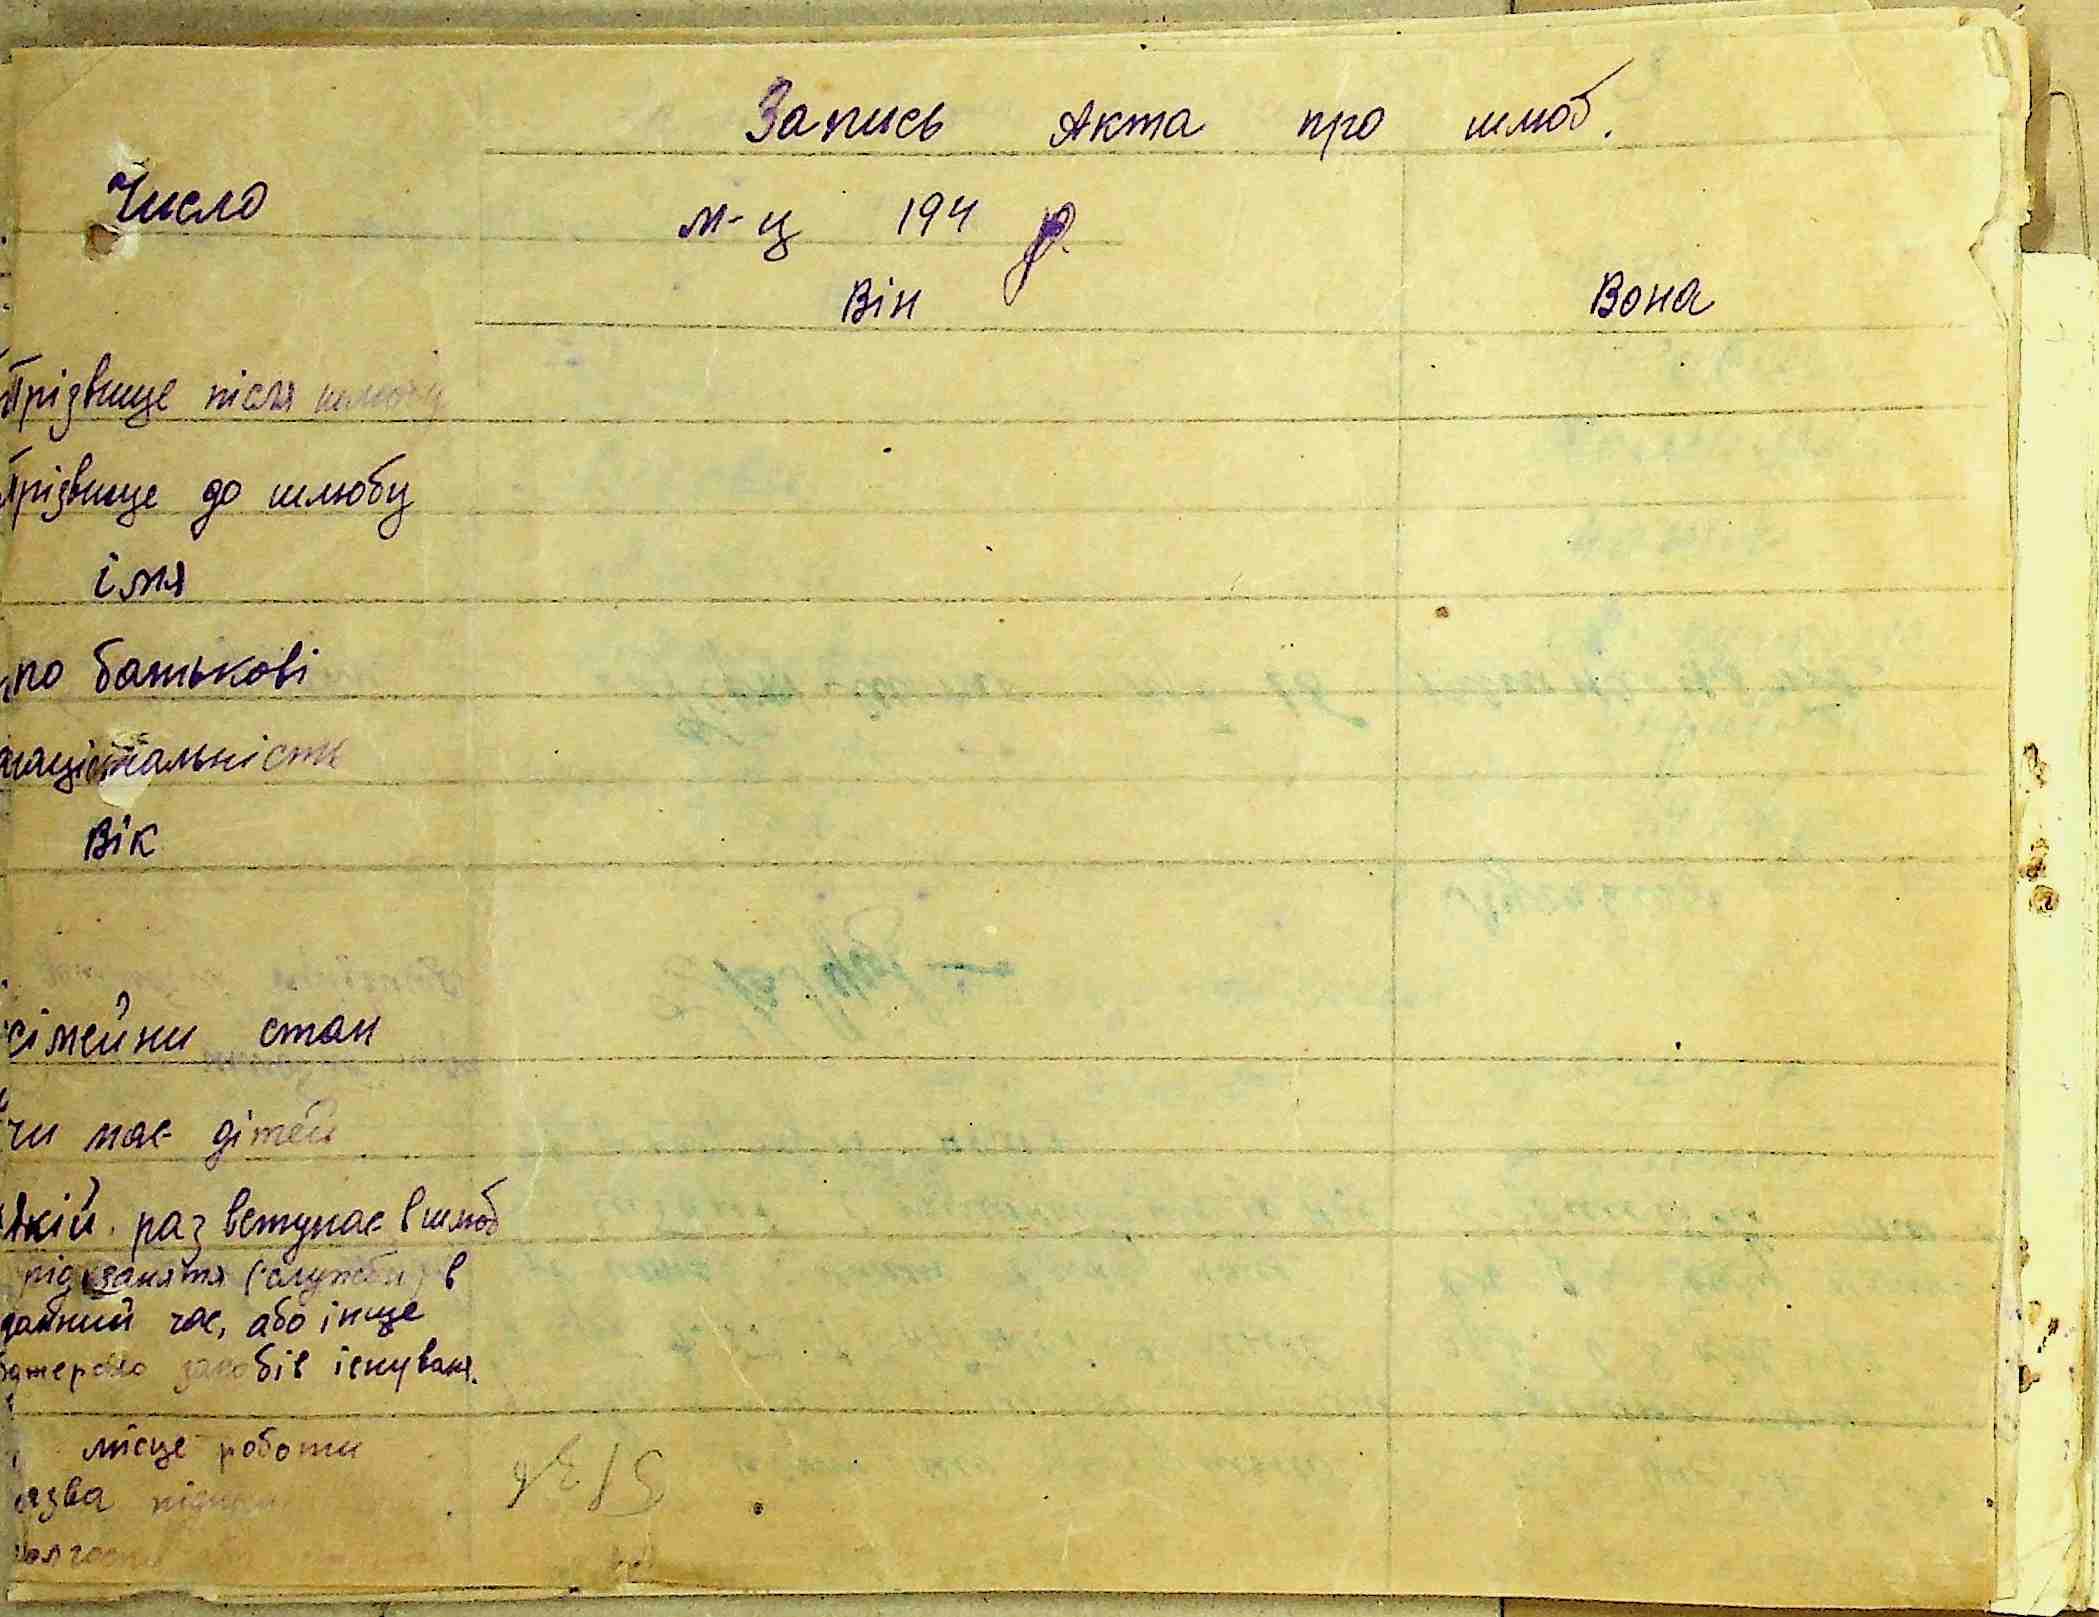 Запись Акта про шлюб.
Число м-ц 194 р.
Він Вона
Прізвище після шлюбу
Прізвище до шлюбу
імя
по батькові
національність
Вік
сімейни стан
чи має дітей
Якій раз вступає в шлюб
рід заняття (служби) в
данний час, або інще
джерело засобів існуваня.
місце роботи
назва